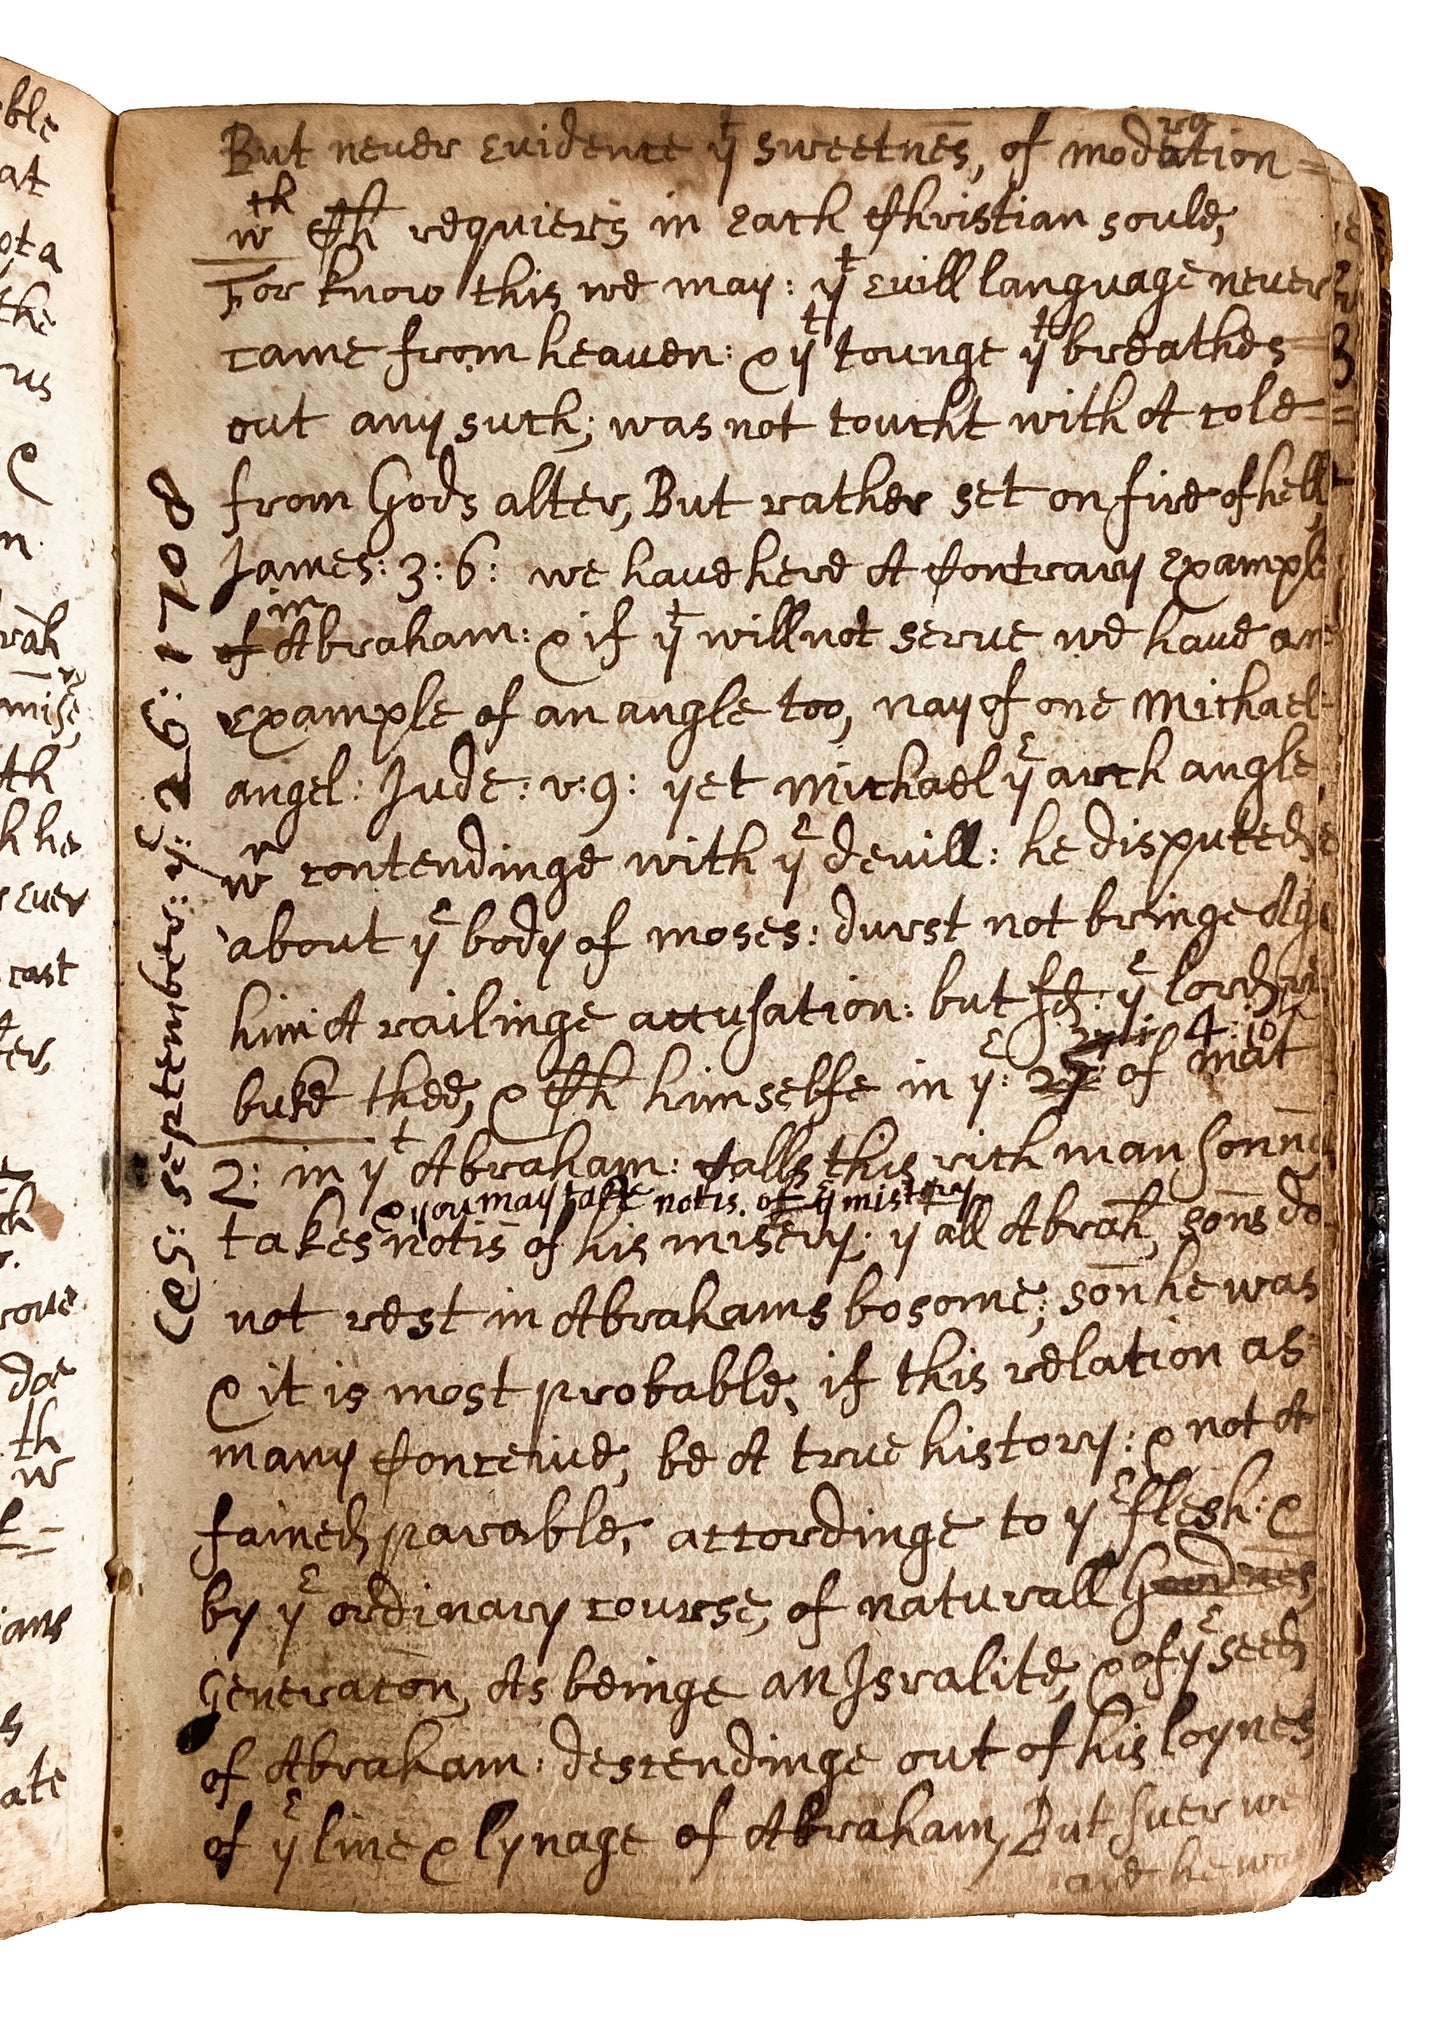 But never evidence yt sweetnēs, of modration=
wth Ch requiers in each Christian soule,
For know this we may: yt evill language never
came from heaven: & yt tounge yt breathes
out any such; was not toucht with A cole=
from Gods alter, But rather set on fire of hell,
James: 3:6: we have herd A Contrary exampl
of in Abraham: & if yt will not serve we have an=
example of an angle too, nay of one Michael
angel: Jude: v:9: yet Michael ye arch angle
wn contendinge with ye devill: he disputed
about ye body of moses: durst not bringe Ag
him A railinge accusation: but sd: ye lord re
buke thee, & Ch himselfe in ye: of mat 4:10
2: in yt Abraham: Calls this rich man sonne
& you may take notis. of ye mistery
takes notis of his misery; yt all Abrah, sons do
not rest in Abrahams bosome; son he was
& it is most probable, if this relation as
many Conceive, be A true history: & not A
fained parable, accordinge to ye flesh: &
by ye ordinary course, of naturall
Generaton, As beinge an Isralite, & of ye seed
of Abraham: descendinge out of his loynes,
of ye line & lynage of Abraham, But suer we
and he
Ces: september: ye: 26: 1708
ble
at
ot a
the
us
&
n
rah
mise,
th
h he
ever
cast
ter,
rove
doe
th
w
ians
s
ate